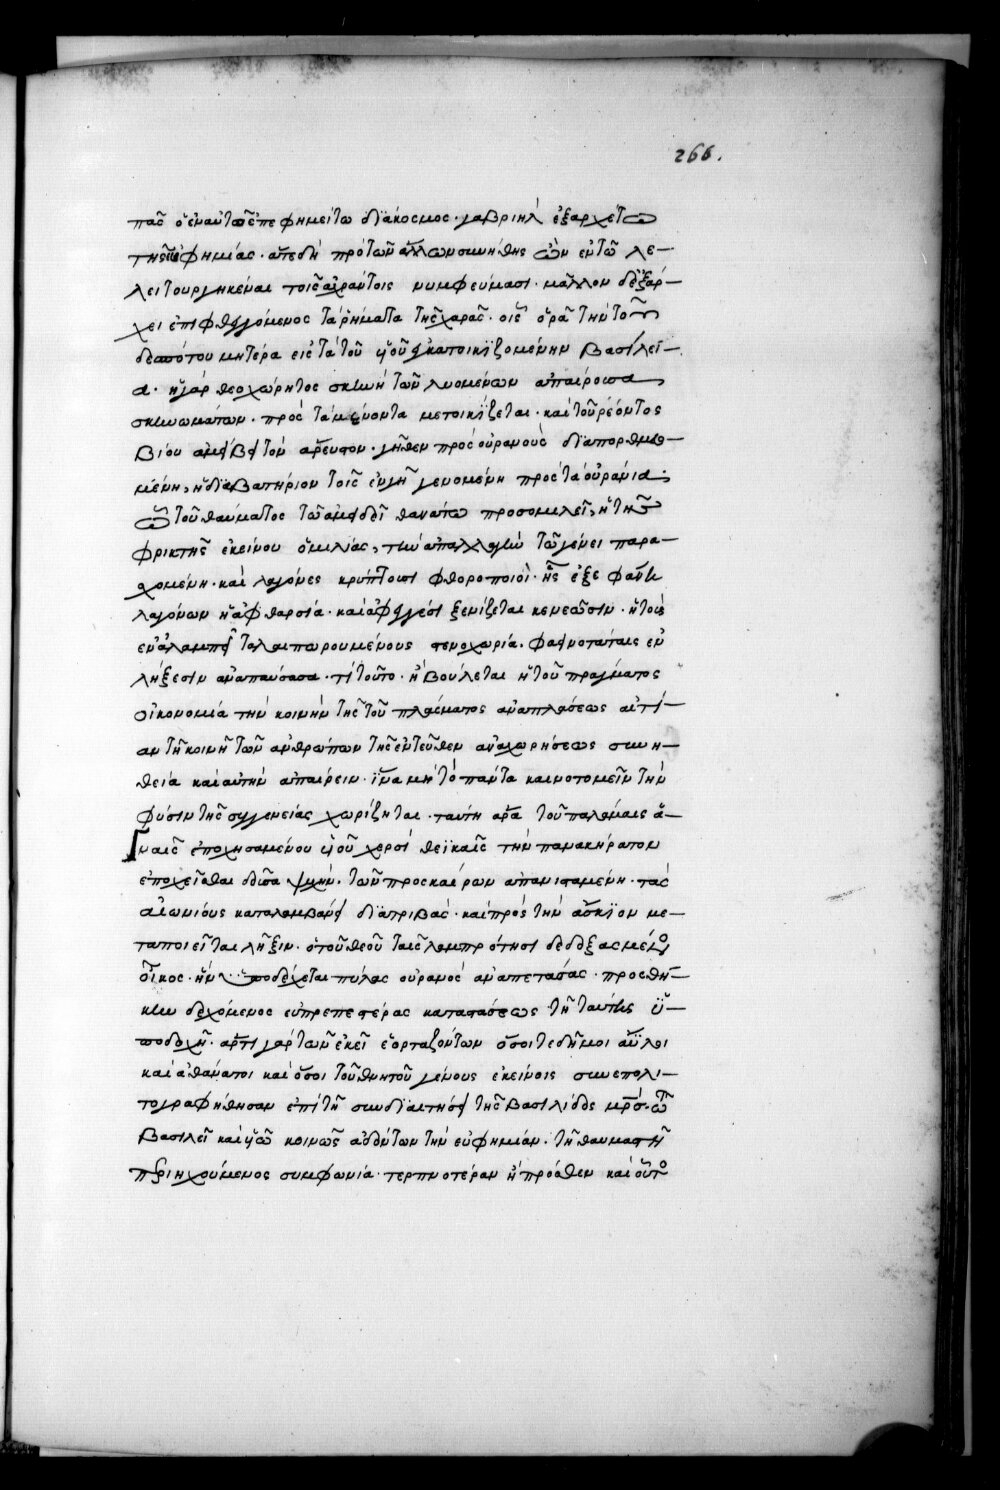 266.
πᾶς ὁ ἐν αὐτῶ ἐπεφημείτω διάκοσμος · γαβριὴλ ἐξαρχέτω
τῆς εὐφημίας · ἅτε δὴ πρὸ τῶν ἄλλων συνήθης ὢν ἐν τῶ λε-
λειτουργηκέναι τοῖς ἀχράντοις νυμφεύμασι · μᾶλλον δὲ ἐξάρ-
χει ἐπιφθεγγόμενος τὰ ῥήματα τῆς χαρᾶς · οἷς ὁρᾶ τὴν τοῦ
δεσπότου μητέρα εἰς τὰ τοῦ υἱοῦ κατοικιζομένην βασίλει-
α · ἡ γὰρ θεοχώρητος σκηνὴ τῶν λυομένων ἀπαίρουσα
σκηνωμάτων · πρὸς τὰ μένοντα μετοικίζεται · καὶ τοῦ ῥέοντος
βίου ἀμείβει τὸν ἄρευστον · γῆθεν πρὸς οὐρανοὺς διαπορθμευ-
μένη, ἡ διαβατήριον τοῖς ἐν γῆ γενομένη πρὸς τὰ οὐράνια ·
ὢ τοῦ θαύματος τῶ ἀμειδεῖ θανάτω προσομιλεῖ, ἡ τῆς
φρικτῆς ἐκείνου ὁμιλίας, τὴν ἀπαλλαγὴν τῶ γένει παρα-
χομένη · καὶ λαγόνες κρύπτουσι φθοροποιοί · ἧς ἐξεφάνη
λαγόνων ἡ ἀφθαρσία · καὶ ἀφεγγέσι ξενίζεται κενεῶσιν · ἡ τοὺς
ἐν ἀλαμπεῖ ταλαιπωρουμένους στενοχωρία · φαεινοτάταις ἐν
λήξεσιν ἀναπαύσασα · τί τοῦτο · ἢ βούλεται ἡ τοῦ πράγματος
οἰκονομία τὴν κοινὴν τῆς τοῦ πλάσματος ἀναπλάσεως αἰτί-
αν τῆ κοινῆ τῶν ἀνθρώπων τῆς ἐντεῦθεν ἀναχωρήσεως συνη-
θεία καὶ αὐτὴν ἀπαίρειν · ἵνα μὴ τὸ πάντα καινοτομεῖν τὴν
φύσιν τῆς συγγενείας χωρίζηται · ταύτη ἄρα τοῦ παλάμαις ἁ-
γναῖς ἐποχησαμένου υἱοῦ χερσὶ θεϊκαῖς τὴν πανακήρατον
ἐποχεῖσθαι δοῦσα ψυχήν · τῶν προσκαίρων ἀπανισταμένη · τὰς
αἰωνίους καταλαμβάνει διατριβάς · καὶ πρὸς τὴν ἄσκιον με-
ταποιεῖται λῆξιν · ὁ τοῦ θεοῦ ταῖς λαμπρότησι δεδοξασμένος
οἶκος · ἣν ὑποδέχεται πύλας οὐρανὸς ἀναπετάσας · προσθή-
κην δεχόμενος εὐπρεπεστέρας καταστάσεως τῆ ταύτης ὑ-
ποδοχῆ · ἄρτι γὰρ τῶν ἐκεῖ ἑορταζόντων ὅσοι τε δῆμοι ἄϋλοι
καὶ ἀθάνατοι καὶ ὅσοι τοῦ θνητοῦ γένους ἐκείνοις συνεπολι-
τογραφήθησαν ἐπὶ τῆ συνδιαιτήσει τῆς βασιλίδος μρ̅ς · τῶ
βασιλεῖ καὶ υἱῶ κοινῶς ἀδόντων τὴν εὐφημίαν · τῆ θαυμαστῆ
περιηχούμενος συμφωνία · τερπνοτέραν ἢ πρόσθεν καὶ οὗτος